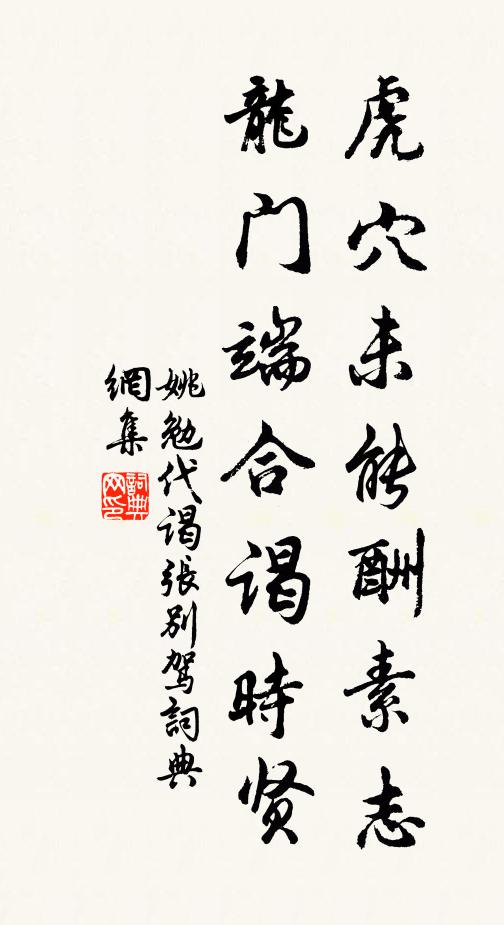 虎穴未能酬素志
龍门端合谒時贤
姚勉代谒張别駕詞典
網集
詞典
网印